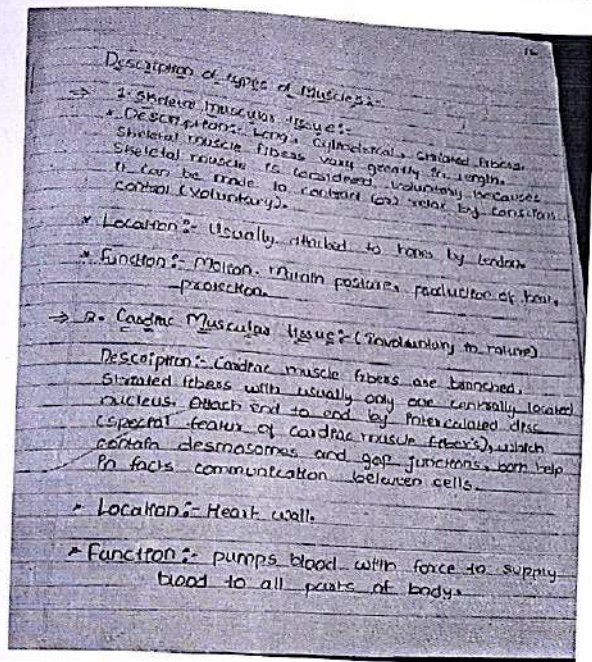 12
Description of types of Muscles:-
⇒ 1. Skeletal muscular tissue:-
* Description:- Long, cylindrical, striated fibers.
Skeletal muscle fibers vary greatly in length.
Skeletal muscle is considered voluntary because
it can be made to contract (or) relax by conscious
control (voluntary).
* Location:- Usually attached to bones by tendon.
* Function:- Motion. posture, production of heat,
protection.
⇒ 2. Cardiac Muscular tissue:- (involuntary in nature)
Description:- Cardiac muscle fibers are branched,
striated fibers with usually only one centrally located
nucleus. Attach end to end by intercalated disc
(special featur of cardiac muscle fiber's), which
contain desmosomes and gap junctions, both help
in facts communication between cells.
* Location:- Heart wall.
* Function:- pumps blood with force to supply
blood to all parts of body.